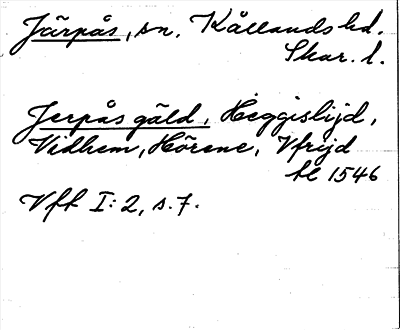 Järpås, sn. Kållands hd.
Skar. l.
Jerpås gäld, Heggislijd,
Vidhem, Hörene, Vfrijd
hl 1546
Vff I:2, s. 7.